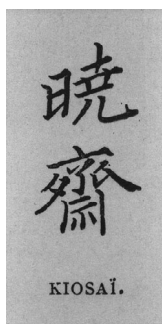 暁
齋
KIOSAÏ.